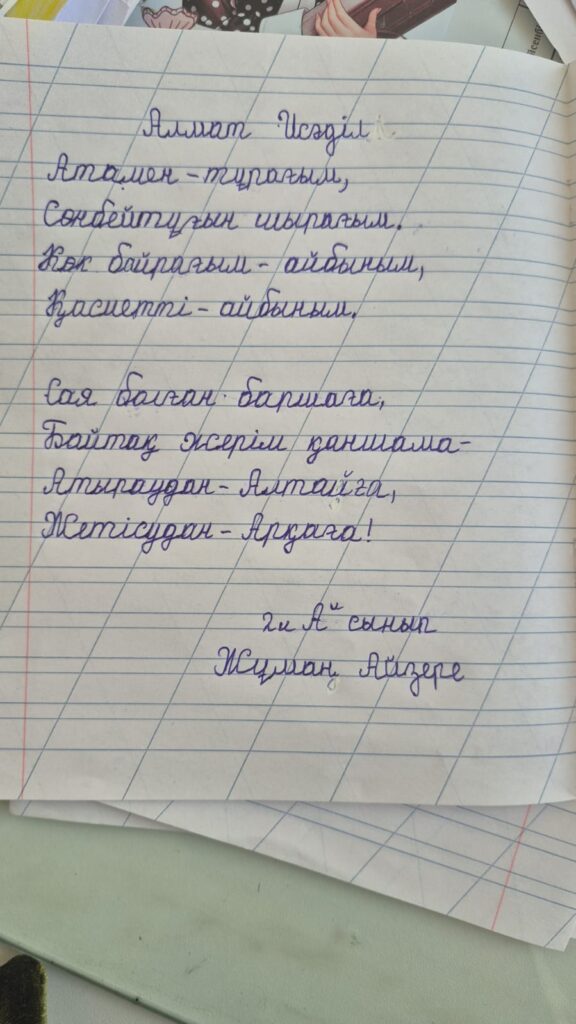 Алмат Исәділ
Атамен-тұрағым,
Сөнбейтұғын шырағым.
Көк байрағым- айбыным,
Қасиетті- айбыным.
Сая болған баршаға,
Байтақ жерім қаншама-
Атыраудан- Алтайға,
Жетісудан- Арқаға!
2 "А" сынып
Жұман Айзере